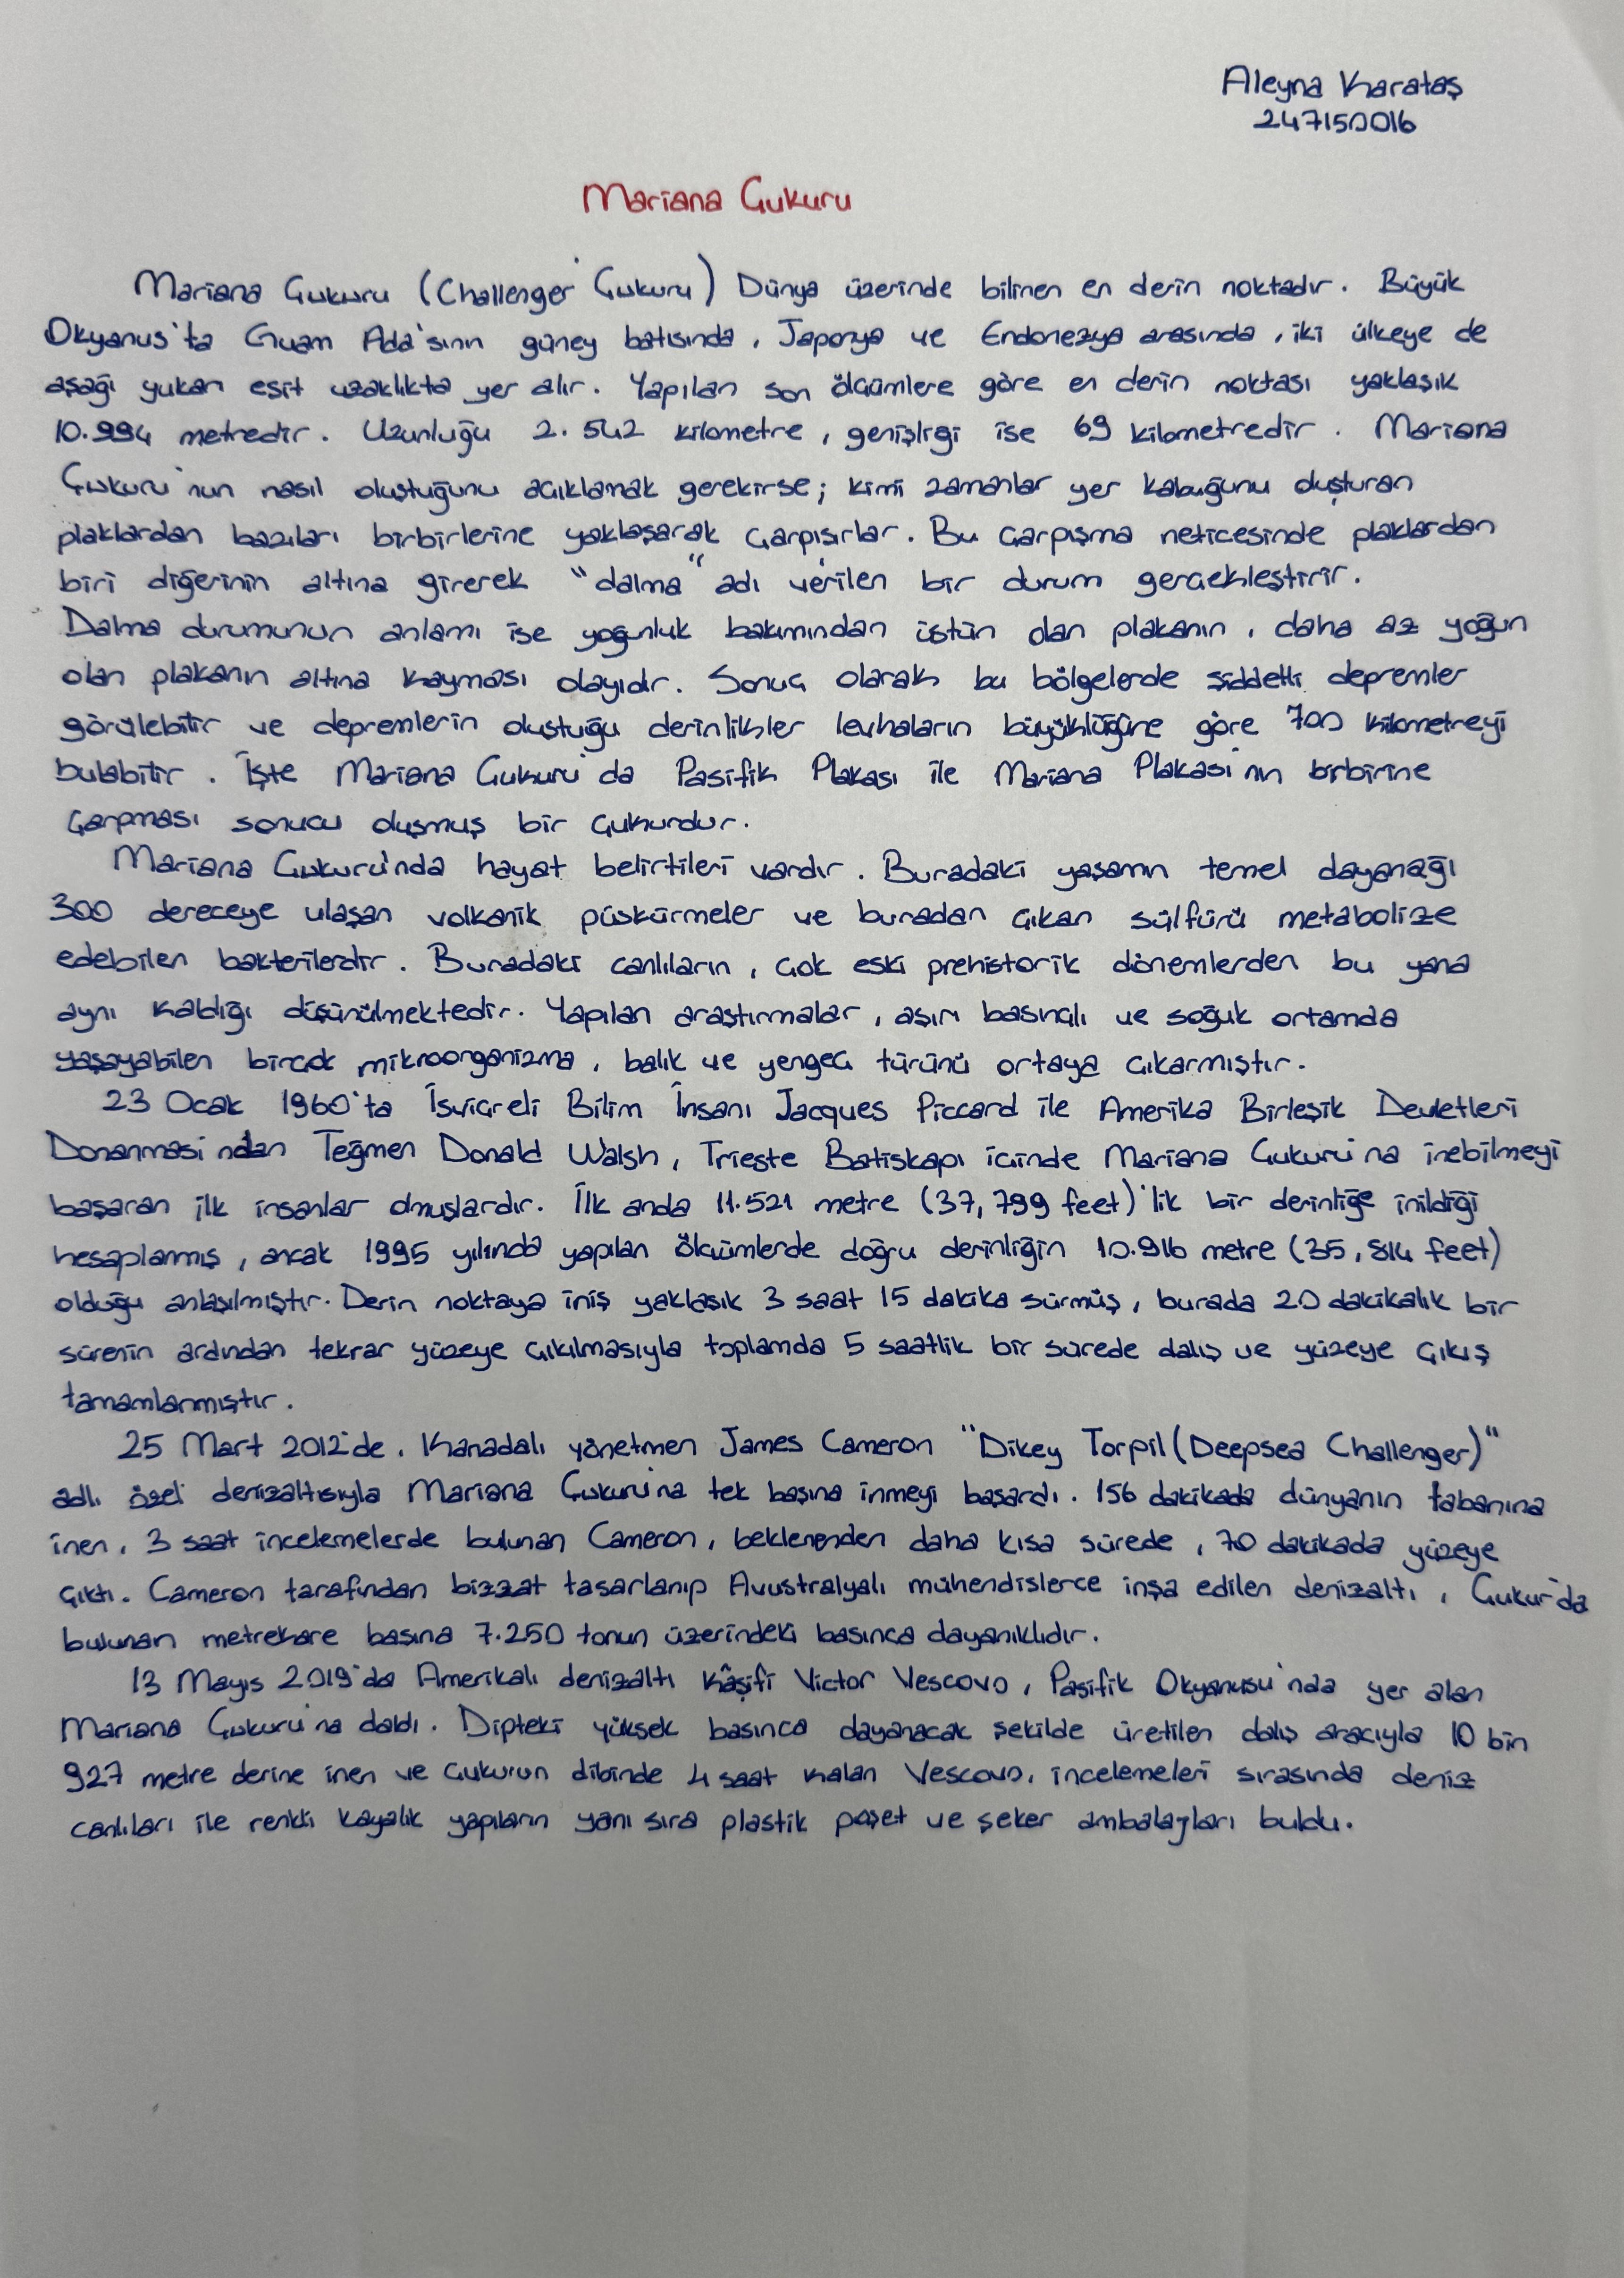 Aleyna Karataş
247150016
Mariana Çukuru
Mariana Çukuru (Challenger Çukuru) Dünya üzerinde bilinen en derin noktadır. Büyük
Okyanus'ta Guam Ada'sının güney batısında, Japonya ve Endonezya arasında, iki ülkeye de
aşağı yukarı eşit uzaklıkta yer alır. Yapılan son ölçümlere göre en derin noktası yaklaşık
10.994 metredir. Uzunluğu 2.542 kilometre, genişliği ise 69 kilometredir. Mariana
Çukuru'nun nasıl oluştuğunu açıklamak gerekirse; kimi zamanlar yer kabuğunu oluşturan
plaklardan bazıları birbirlerine yaklaşarak çarpışırlar. Bu çarpışma neticesinde plaklardan
biri diğerinin altına girerek "dalma" adı verilen bir durum gerçekleştirir.
Dalma durumunun anlamı ise yoğunluk bakımından üstün olan plakanın, daha az yoğun
olan plakanın altına kayması olayıdır. Sonuç olarak bu bölgelerde şiddetli depremler
görülebilir ve depremlerin oluştuğu derinlikler levhaların büyüklüğüne göre 700 kilometreyi
bulabilir. İşte Mariana Çukuru'da Pasifik Plakası ile Mariana Plakası'nın birbirine
çarpması sonucu oluşmuş bir çukurdur.
Mariana Çukuru'nda hayat belirtileri vardır. Buradaki yaşamın temel dayanağı
300 dereceye ulaşan volkanik püskürmeler ve buradan çıkan sülfürü metabolize
edebilen bakterilerdir. Buradaki canlıların, çok eski prehistorik dönemlerden bu yana
aynı kaldığı düşünülmektedir. Yapılan araştırmalar, aşırı basınçlı ve soğuk ortamda
yaşayabilen birçok mikroorganizma, balık ve yengeç türünü ortaya çıkarmıştır.
23 Ocak 1960'ta İsviçreli Bilim İnsanı Jacques Piccard ile Amerika Birleşik Devletleri
Donanması'ndan Teğmen Donald Walsh, Trieste Batiskapı içinde Mariana Çukuru'na inebilmeyi
başaran ilk insanlar olmuşlardır. İlk anda 11.521 metre (37,799 feet)'lik bir derinliğe inildiği
hesaplanmış, ancak 1995 yılında yapılan ölçümlerde doğru derinliğin 10.916 metre (35,814 feet)
olduğu anlaşılmıştır. Derin noktaya iniş yaklaşık 3 saat 15 dakika sürmüş, burada 20 dakikalık bir
sürenin ardından tekrar yüzeye çıkılmasıyla toplamda 5 saatlik bir sürede dalış ve yüzeye çıkış
tamamlanmıştır.
25 Mart 2012'de, Kanadalı yönetmen James Cameron "Dikey Torpil (Deepsea Challenger)"
adlı özel denizaltısıyla Mariana Çukuru'na tek başına inmeyi başardı. 156 dakikada dünyanın tabanına
inen, 3 saat incelemelerde bulunan Cameron, beklenenden daha kısa sürede, 70 dakikada yüzeye
çıktı. Cameron tarafından bizzat tasarlanıp Avustralyalı mühendislerce inşa edilen denizaltı, Çukur'da
bulunan metrekare başına 7.250 tonun üzerindeki basınca dayanıklıdır.
13 Mayıs 2019'da Amerikalı denizaltı kâşifi Victor Vescovo, Pasifik Okyanusu'nda yer alan
Mariana Çukuru'na daldı. Dipteki yüksek basınca dayanacak şekilde üretilen dalış aracıyla 10 bin
927 metre derine inen ve çukurun dibinde 4 saat kalan Vescovo, incelemeleri sırasında deniz
canlıları ile renkli kayalık yapıların yanı sıra plastik poşet ve şeker ambalajları buldu.